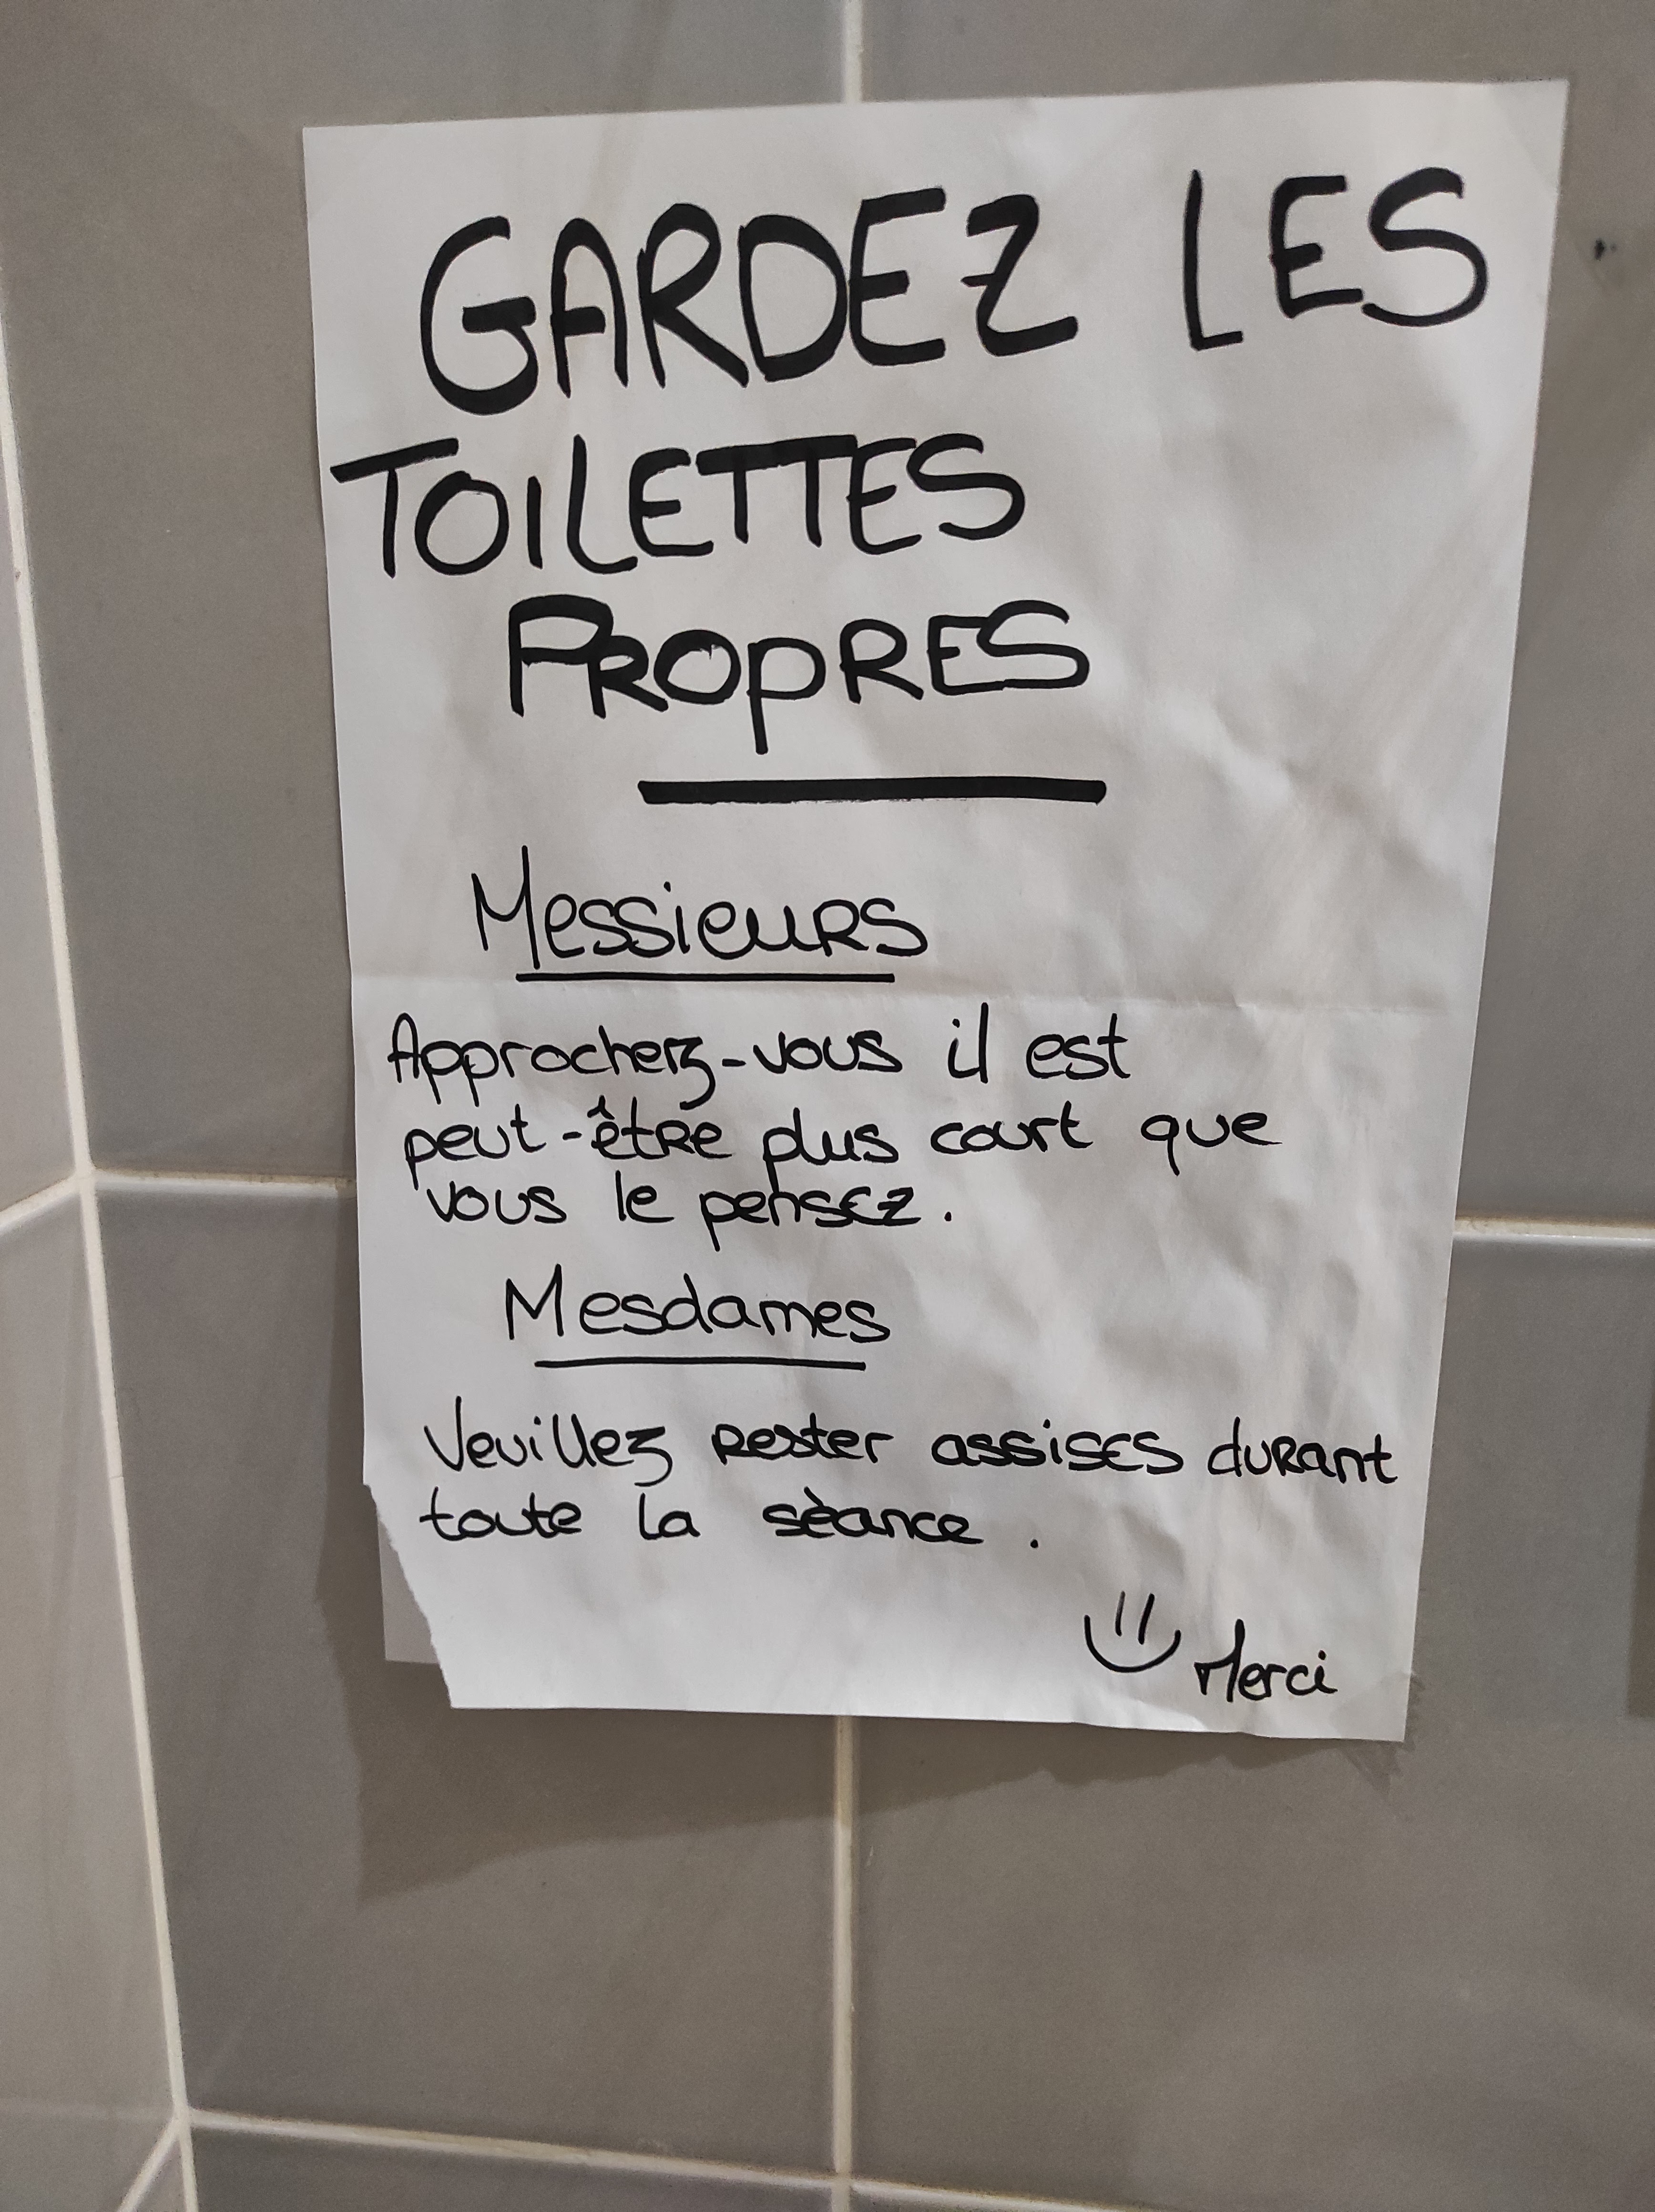 GARDEZ LES
TOILETTES
PROPRES
Messieurs
Approchez-vous il est
peut-être plus court que
vous le pensez.
Mesdames
Veuillez rester assises durant
toute la sèance.
Merci